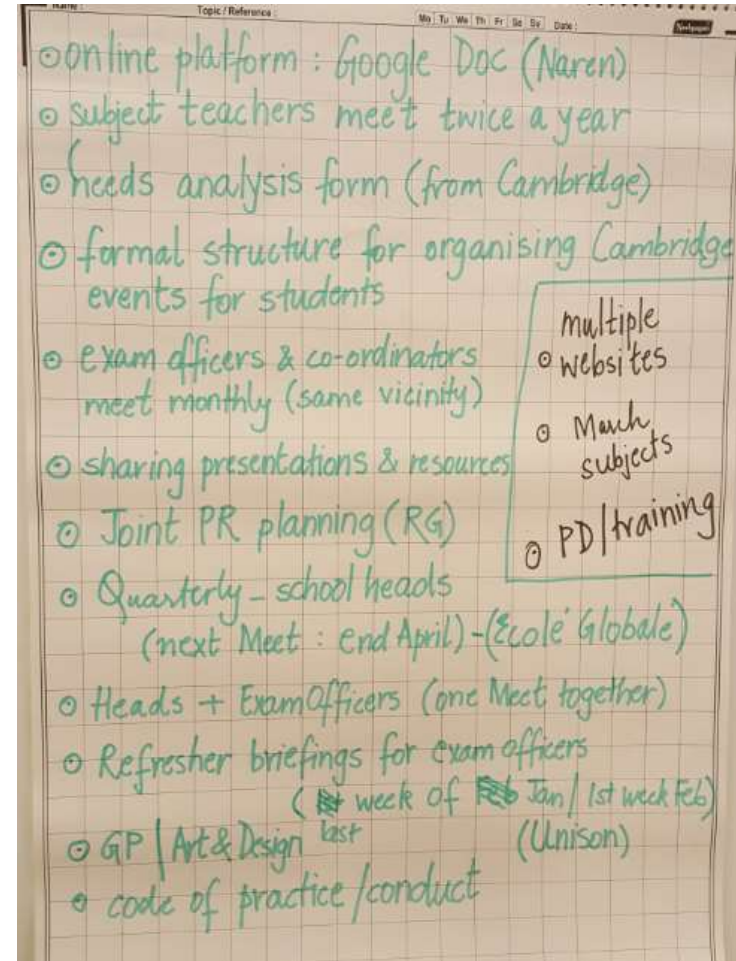 Topic / Reference :
Mo Tu We Th Fr Sa Su Date :
online platform : Google Doc (Naren)
subject teachers meet twice a year
needs analysis form (from Cambridge)
formal structure for organising Cambridge
events for students
exam officers & co-ordinators
meet monthly (same vicinity)
sharing presentations & resources
Joint PR planning (RG)
Quarterly - school heads
(next Meet : end April) - (École Globale)
Heads + Exam Officers (one Meet together)
Refresher briefings for exam officers
( last week of Jan / 1st week Feb)
(Unison)
GP | Art & Design
code of practice / conduct
multiple
websites
March
subjects
PD / training